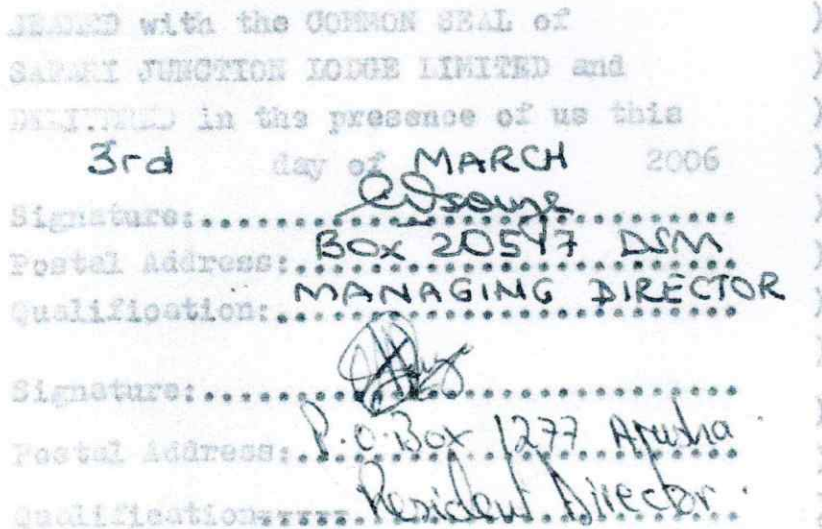 SEALED with the COMMON SEAL of )
SAFARI JUNCTION LODGE LIMITED and )
DELIVERED in the presence of us this )
3rd day of MARCH 2006 )
Signature:.................... )
Postal Address: Box 20517 DSM )
Qualification: MANAGING DIRECTOR )
Signature:.................... )
Postal Address: P.O.Box 1277 Arusha )
Qualification Resident Director. )